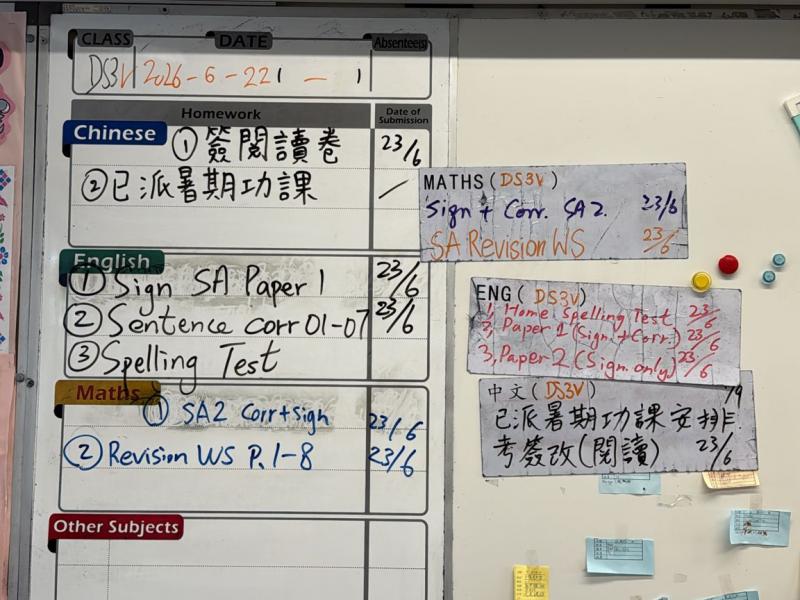 CLASS DATE Absentee(s)
DS3V 2026-6-22 1 — 1
Homework Date of Submission
Chinese ① 簽閱讀卷 23/6
② 已派暑期功課 /
English
① Sign SA Paper 1 23/6
② Sentence corr 01-07 23/6
③ Spelling Test
Maths
① SA2 Corr+sign 23/6
② Revision WS P.1-8 23/6
Other Subjects
MATHS (DS3V)
Sign + Corr. SA2. 23/6
SA Revision WS 23/6
ENG (DS3V)
1, Home Spelling Test 23/6
2, Paper 1 (Sign. + Corr.) 23/6
3, Paper 2 (Sign. only) 23/6
中文 (DS3V) 1/9
已派暑期功課安排
考簽改(閱讀) 23/6